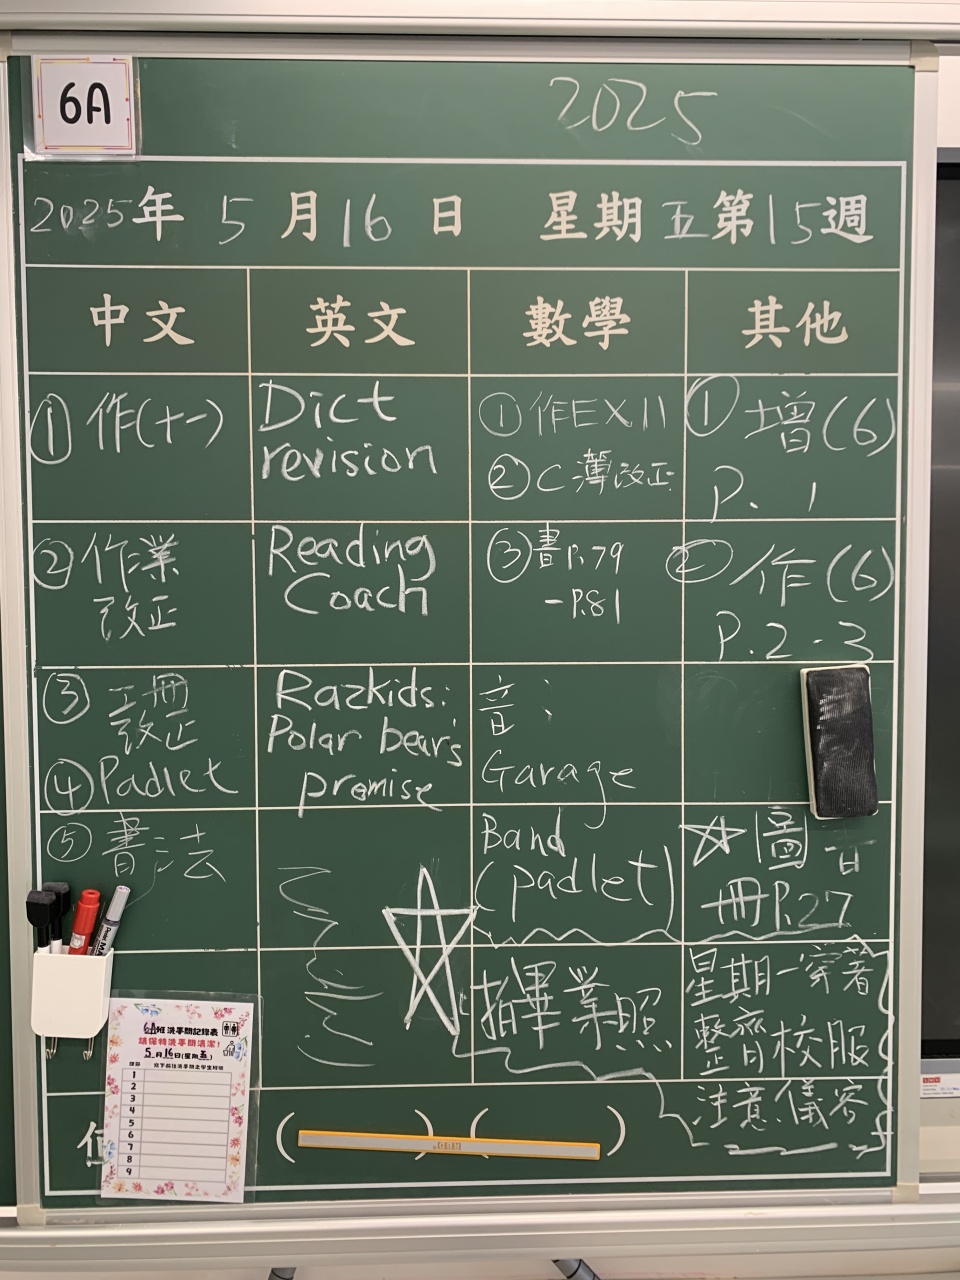 6A
2025
2025年 5月16日 星期五第15週
中文 英文 數學 其他
① 作(十一)
Dict
revision
① 作EX11
② C簿改正
① 增(6)
P. 1
② 作業
改正
Reading
Coach
③ 書P.79
-P.81
② 作(6)
P.2-3
③ 工冊
改正
④ Padlet
Razkids:
Polar bear's
promise
音:
Garage
⑤ 書法
Band
(padlet)
☆圖工
冊P.27
☆
拍畢業照
星期一穿著
整齊校服
注意儀容
( ) ( )
6A班洗手間記錄表
請保持洗手間清潔!
5月16日(星期五)
1
2
3
4
5
6
7
8
9